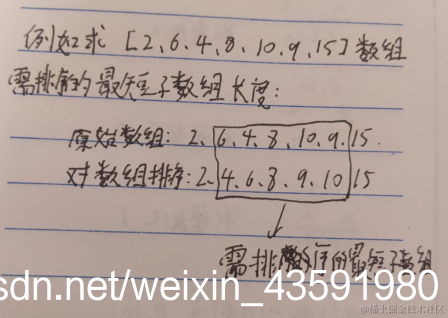 例如求 [2,6,4,8,10,9,15] 数组
需排序的最短子数组长度:
原始数组: 2、6、4、8、10、9、15.
对数组排序: 2、4、6、8、9、10、15
需排 的最短子数组
sdn.net/weixin_43591980
@稀土掘金技术社区